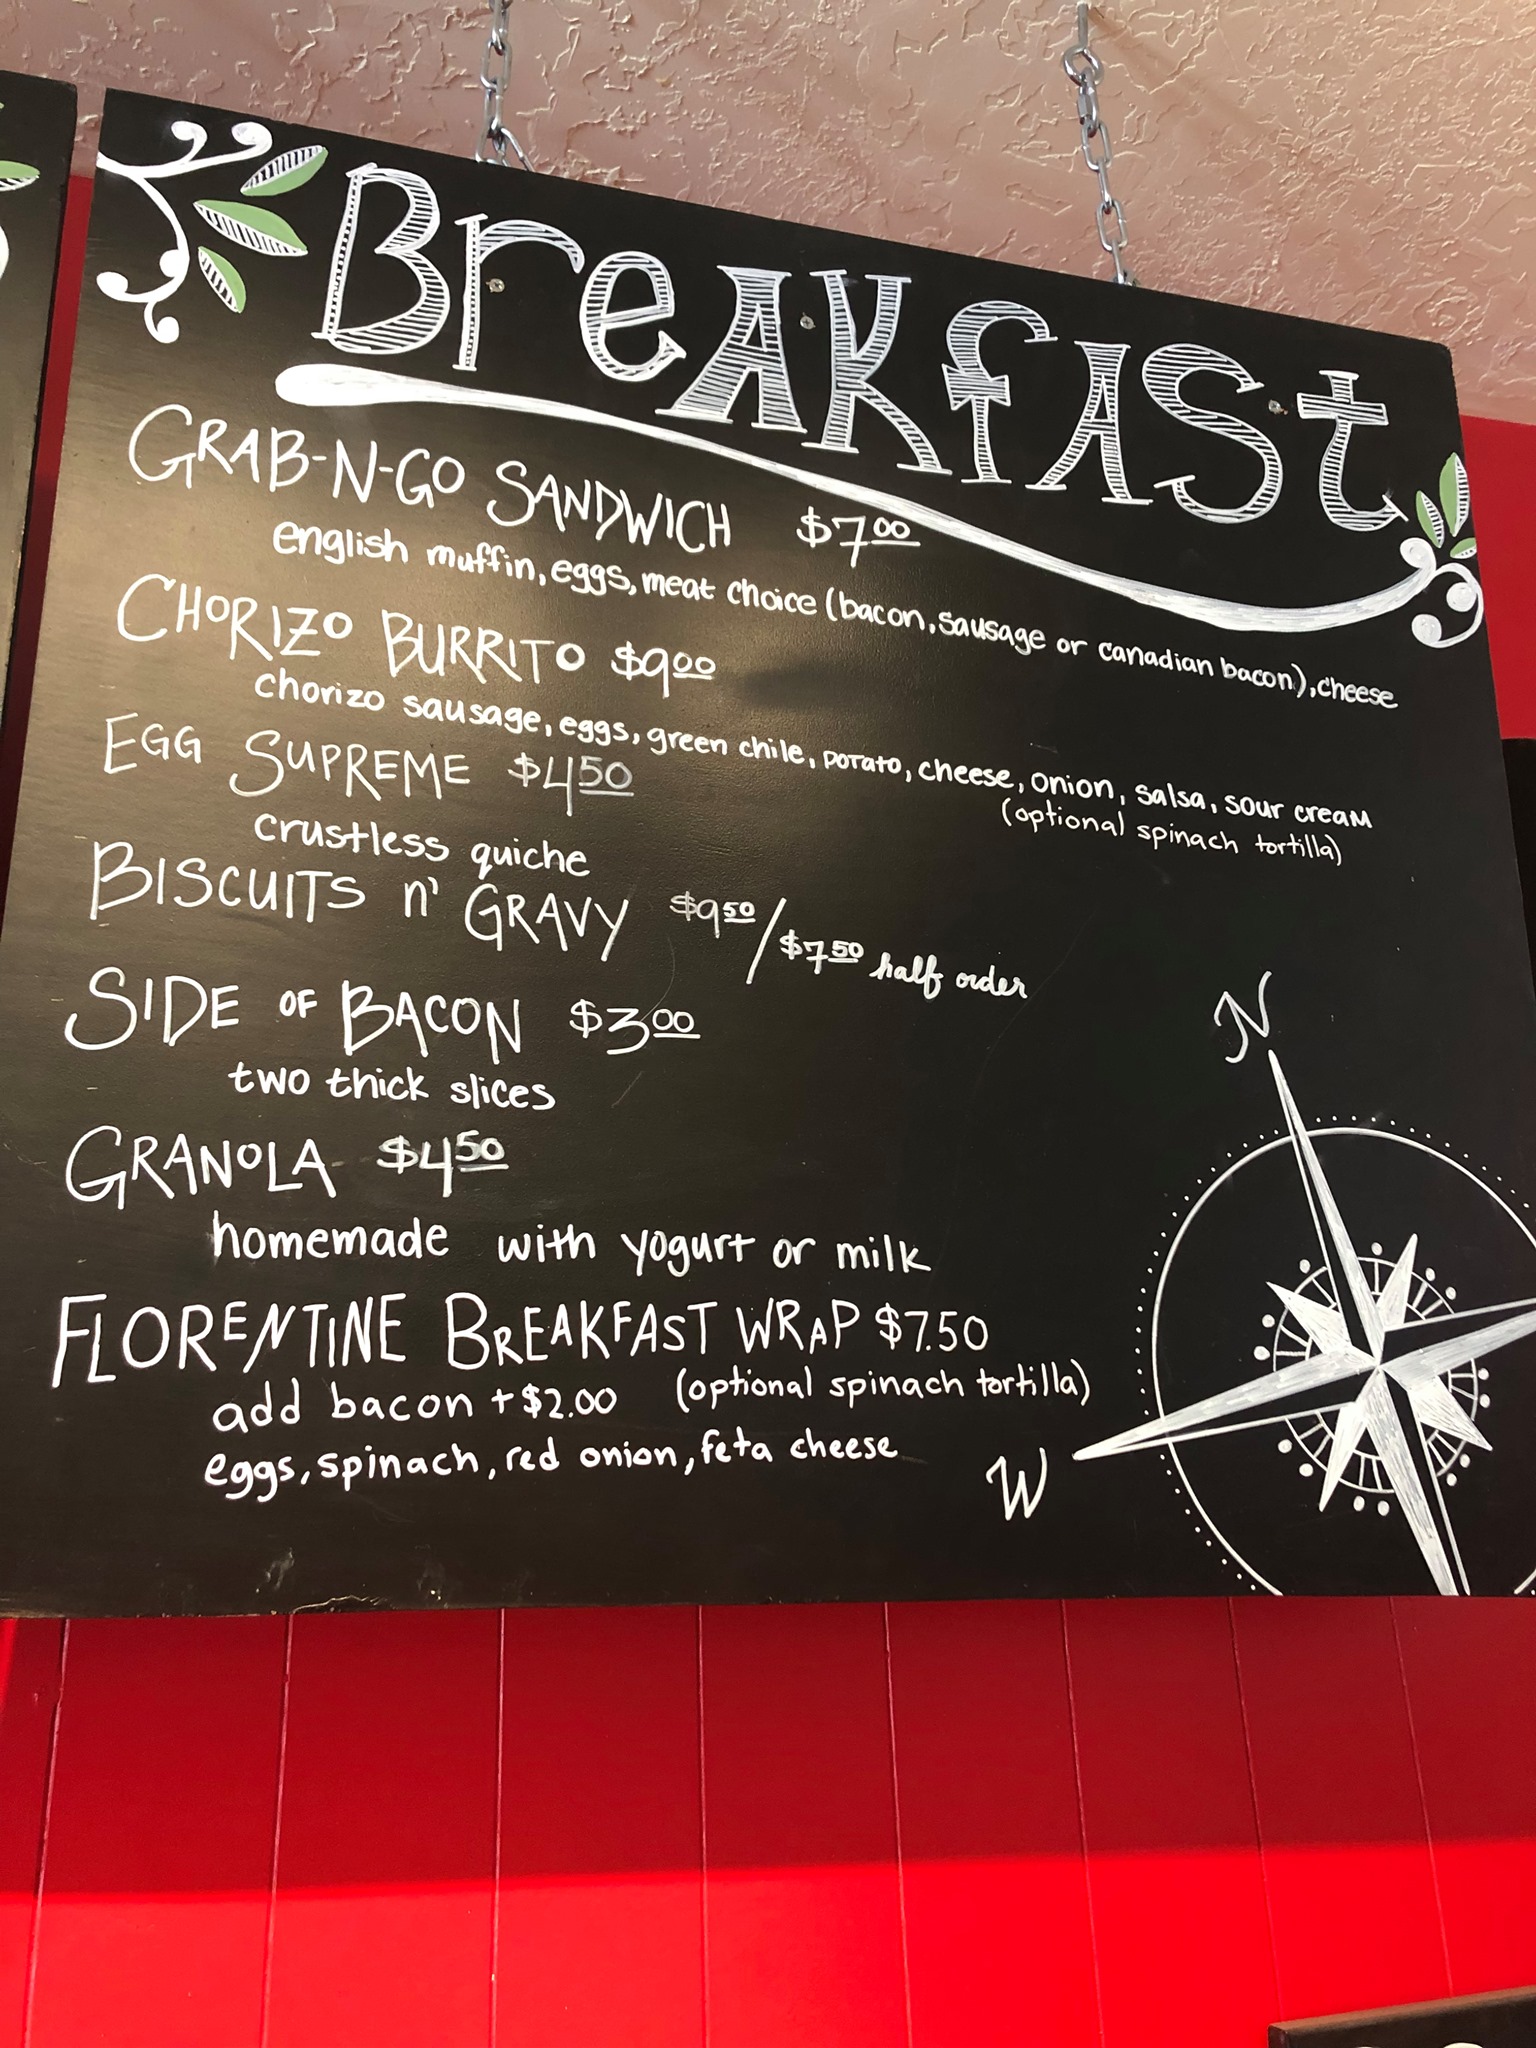 BreAKfASt
GRAB-N-GO SANDWICH $7.00
english muffin, eggs, meat choice (bacon, sausage or canadian bacon), cheese
CHORIZO BURRITO $9.00
chorizo sausage, eggs, green chile, potato, cheese, onion, salsa, sour cream
(optional spinach tortilla)
EGG SUPREME $4.50
crustless quiche
BISCUITS n' GRAVY $9.50/$7.50 half order
SIDE OF BACON $3.00
two thick slices
GRANOLA $4.50
homemade with yogurt or milk
FLORENTINE BREAKFAST WRAP $7.50
add bacon +$2.00 (optional spinach tortilla)
eggs, spinach, red onion, feta cheese
N
W